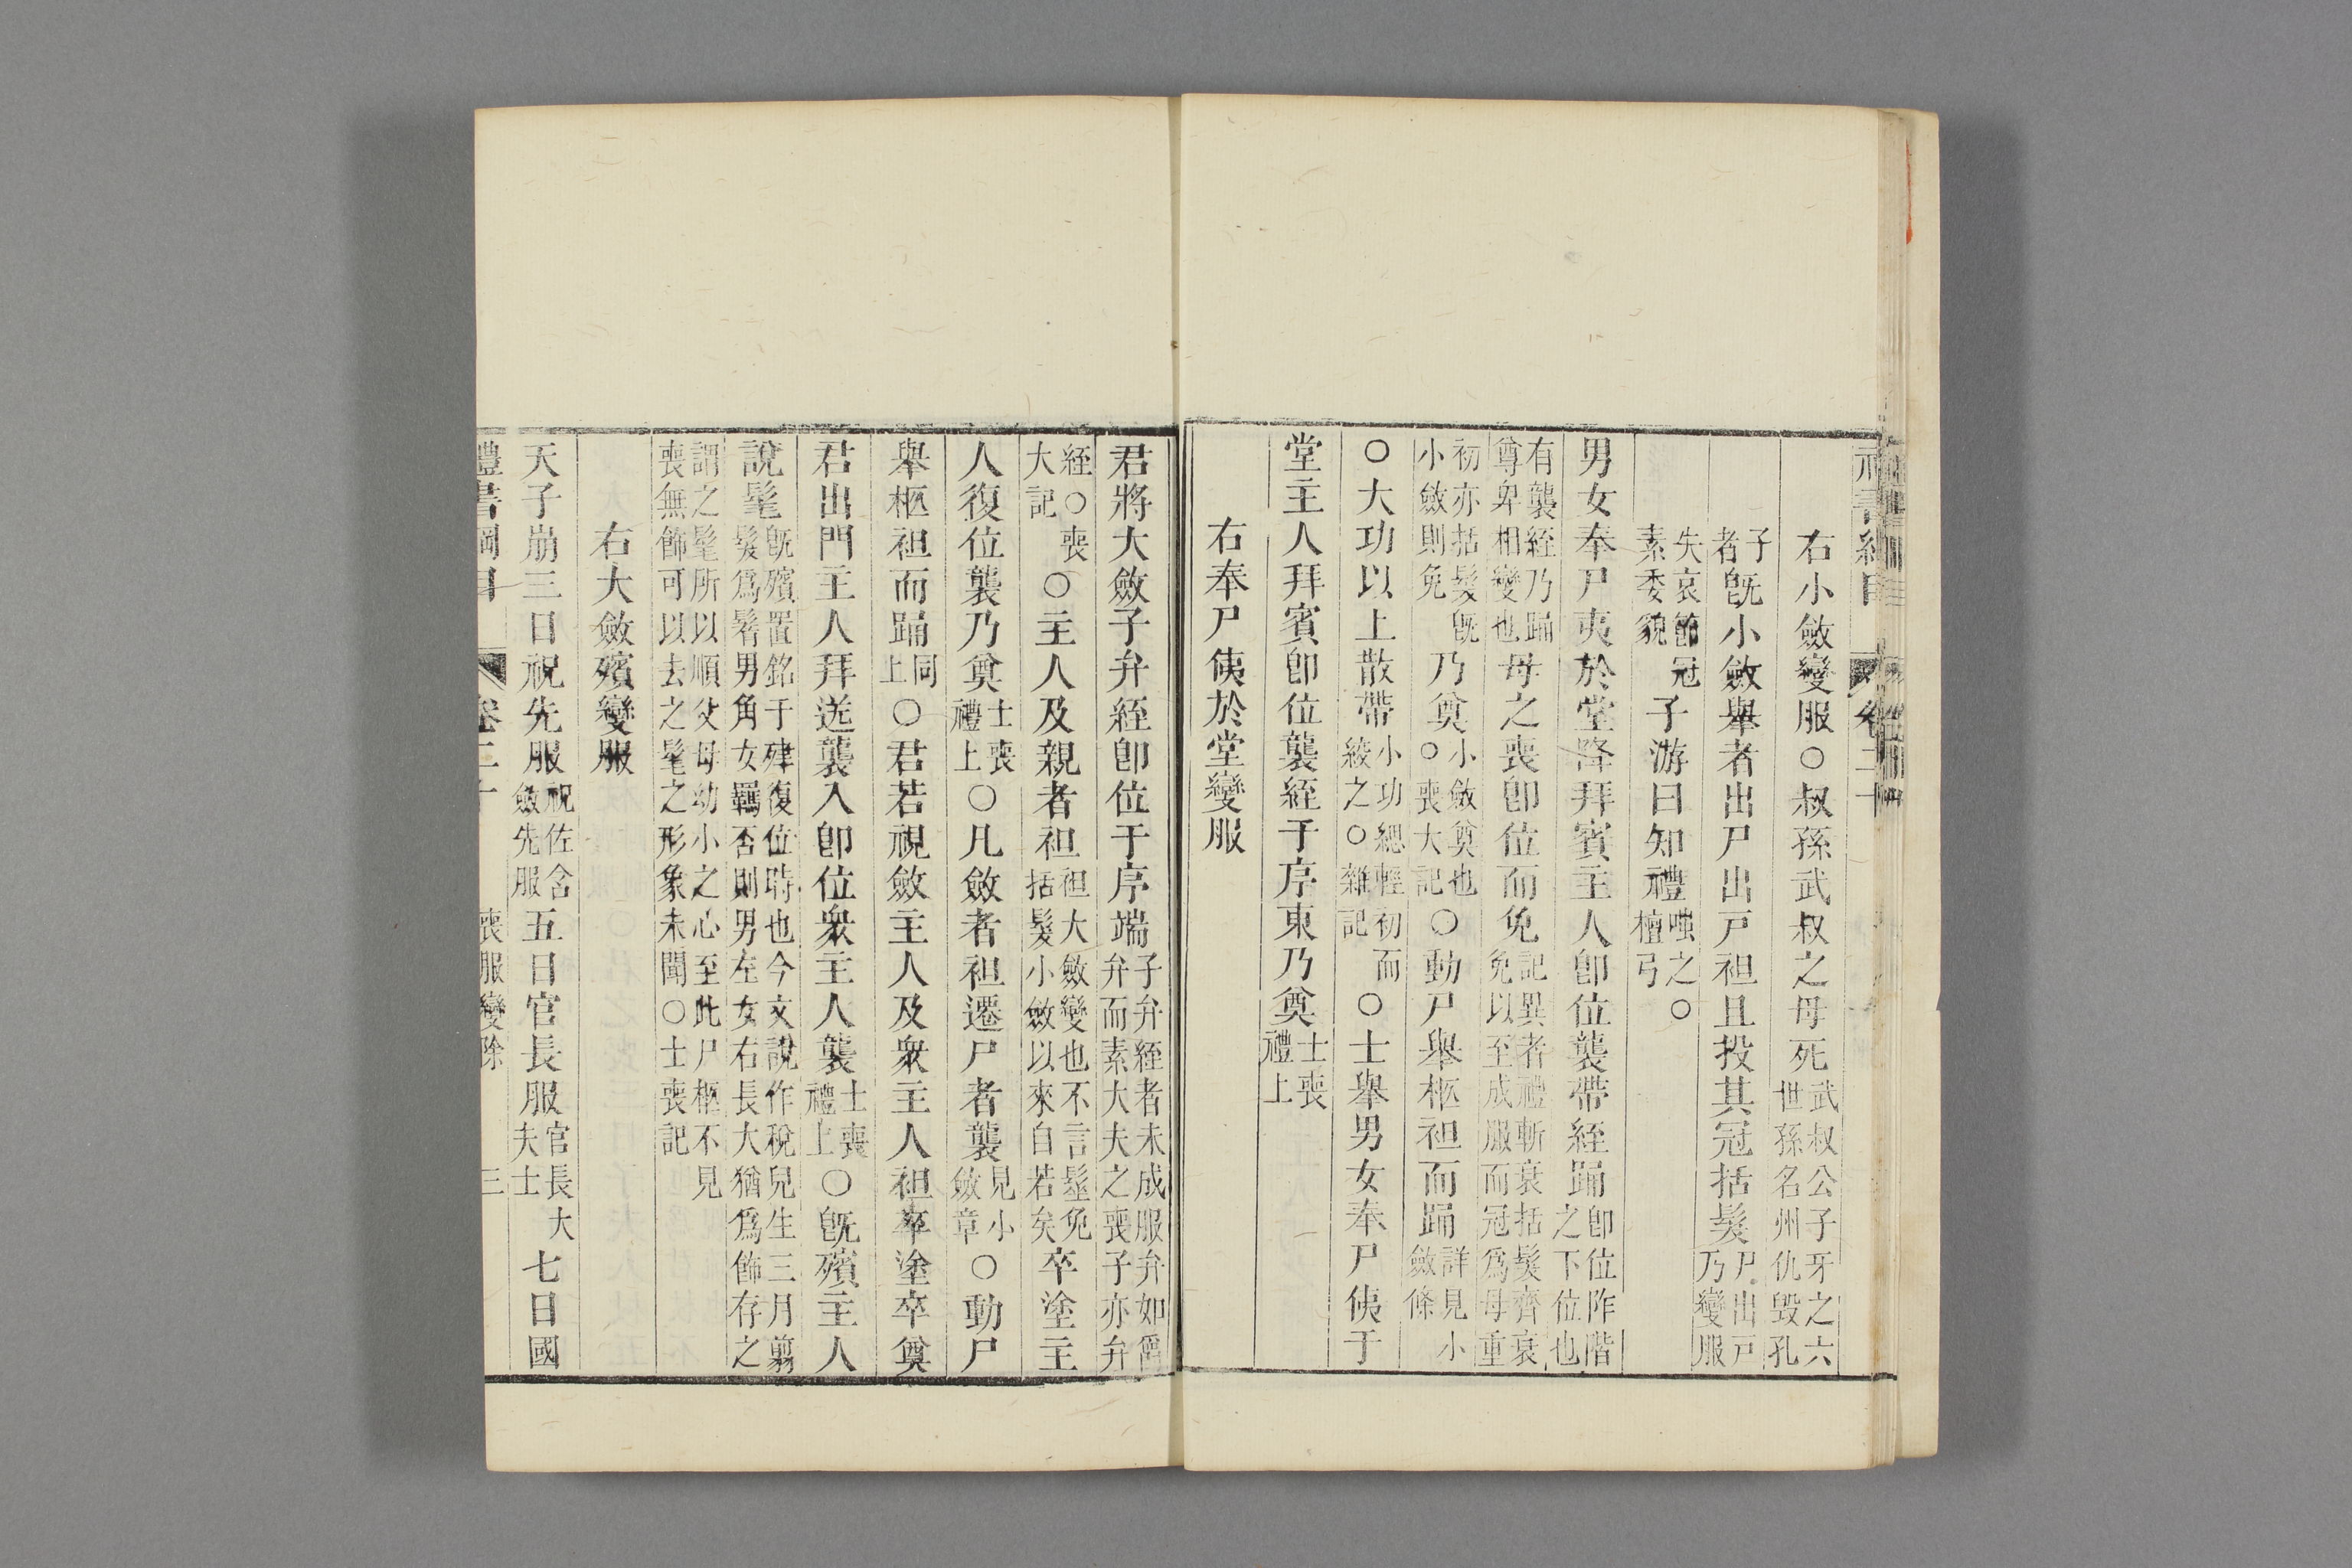 右小斂變服○叔孫武叔之母死武叔公子牙之六世孫名州仇毀孔
子者既小斂舉者出尸出戶袒且投其冠括髮尸出戶乃變服
失哀節冠素委貌子游曰知禮嗤之○檀弓
男女奉尸夷於堂降拜賓主人卽位襲帶絰踊卽位阼階之下位也
有襲絰乃踊尊卑相變也母之喪卽位而免記異者禮斬衰括髮齊衰免以至成服而冠爲母重
初亦括髮既小斂則免乃奠小斂奠也○喪大記○動尸舉柩袒而踊詳見小斂條
○大功以上散帶小功緦輕初而絞之○雜記○士舉男女奉尸侇于
堂主人拜賓卽位襲絰于序東乃奠士喪禮上
右奉尸侇於堂變服
君將大斂子弁絰卽位于序端子弁絰者未成服弁如爵弁而素大夫之喪子亦弁
絰○喪大記○主人及親者袒袒大斂變也不言髽免括髮小斂以來自若矣卒塗主
人復位襲乃奠士喪禮上○凡斂者袒遷尸者襲見小斂章○動尸
舉柩袒而踊同上○君若視斂主人及衆主人袒卒塗卒奠
君出門主人拜送襲入卽位衆主人襲士喪禮上○旣殯主人
說髦旣殯置銘于肂復位時也今文說作稅兒生三月翦髮爲鬌男角女羈否則男左女右長大猶爲飾存之
謂之髦所以順父母幼小之心至此尸柩不見喪無飾可以去之髦之形象未聞○士喪記
右大斂殯變服
天子崩三日祝先服祝佐含斂先服五日官長服官長大夫士七日國
禮書綱目　卷二十　喪服變除　三